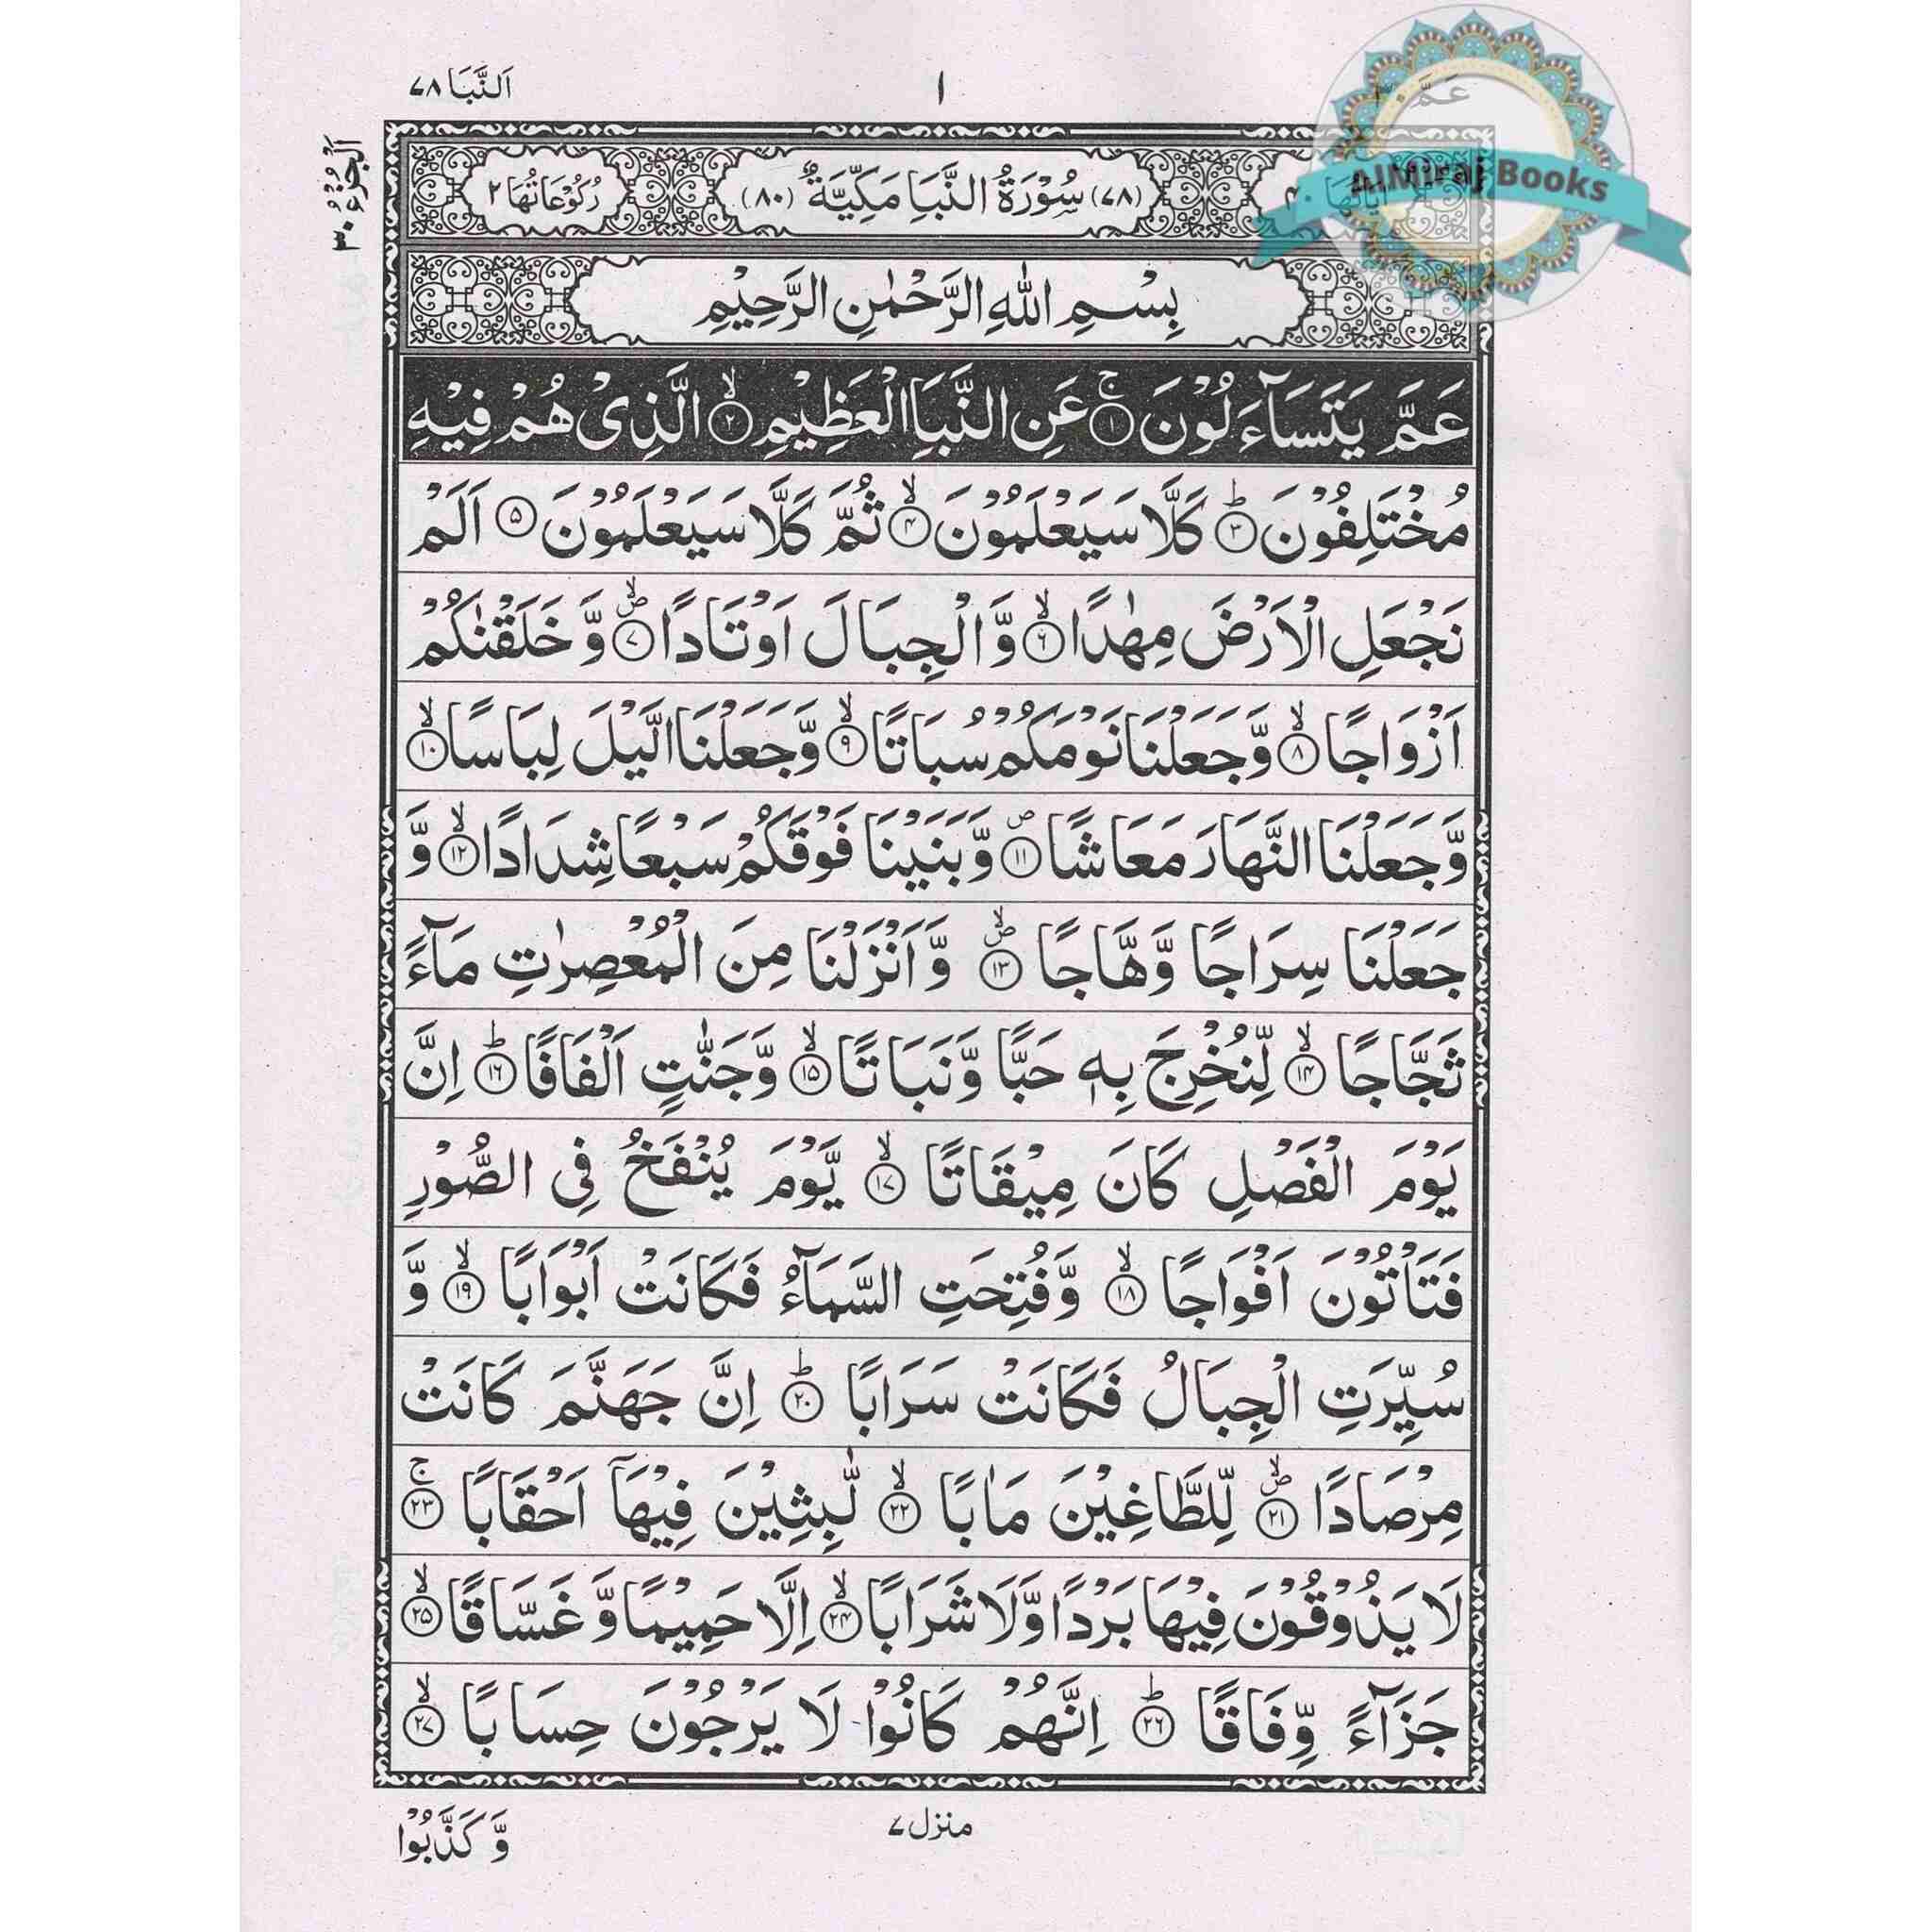 اَلنَّبَا ٧٨
١
عَمَّ ٣٠
اَلْجُزْءُ ٣٠
AlMiraj Books
اٰيَاتُهَا ٤٠ (٧٨) سُوْرَةُ النَّبَاِ مَكِّيَّةٌ (٨٠) رُكُوْعَاتُهَا ٢
بِسْمِ اللّٰهِ الرَّحْمٰنِ الرَّحِيْمِ
عَمَّ يَتَسَآءَلُوْنَ ۚ‏﴿١﴾ عَنِ النَّبَاِ الْعَظِيْمِ ۙ‏﴿٢﴾ الَّذِىْ هُمْ فِيْهِ
مُخْتَلِفُوْنَ ؕ‏﴿٣﴾ كَلَّا سَيَعْلَمُوْنَ ۙ‏﴿٤﴾ ثُمَّ كَلَّا سَيَعْلَمُوْنَ ﴿٥﴾ اَلَمْ
نَجْعَلِ الْاَرْضَ مِهٰدًا ۙ‏﴿٦﴾ وَّالْجِبَالَ اَوْتَادًا ۪ۙ‏﴿٧﴾ وَّخَلَقْنٰكُمْ
اَزْوَاجًا ۙ‏﴿٨﴾ وَّجَعَلْنَا نَوْمَكُمْ سُبَاتًا ۙ‏﴿٩﴾ وَّجَعَلْنَا الَّيْلَ لِبَاسًا ۙ‏﴿١٠﴾
وَّجَعَلْنَا النَّهَارَ مَعَاشًا ۪‏﴿١١﴾ وَّبَنَيْنَا فَوْقَكُمْ سَبْعًا شِدَادًا ۙ‏﴿١٢﴾ وَّ
جَعَلْنَا سِرَاجًا وَّهَّاجًا ۪ۙ‏﴿١٣﴾ وَّاَنْزَلْنَا مِنَ الْمُعْصِرٰتِ مَآءً
ثَجَّاجًا ۙ‏﴿١٤﴾ لِّنُخْرِجَ بِهٖ حَبًّا وَّنَبَاتًا ۙ‏﴿١٥﴾ وَّجَنّٰتٍ اَلْفَافًا ؕ‏﴿١٦﴾ اِنَّ
يَوْمَ الْفَصْلِ كَانَ مِيْقَاتًا ۙ‏﴿١٧﴾ يَّوْمَ يُنْفَخُ فِى الصُّوْرِ
فَتَاْتُوْنَ اَفْوَاجًا ۙ‏﴿١٨﴾ وَّفُتِحَتِ السَّمَآءُ فَكَانَتْ اَبْوَابًا ۙ‏﴿١٩﴾ وَّ
سُيِّرَتِ الْجِبَالُ فَكَانَتْ سَرَابًا ؕ‏﴿٢٠﴾ اِنَّ جَهَنَّمَ كَانَتْ
مِرْصَادًا ۪ۙ‏﴿٢١﴾ لِّلطَّاغِيْنَ مَاٰبًا ۙ‏﴿٢٢﴾ لّٰبِثِيْنَ فِيْهَآ اَحْقَابًا ۚ‏﴿٢٣﴾
لَا يَذُوْقُوْنَ فِيْهَا بَرْدًا وَّلَا شَرَابًا ۙ‏﴿٢٤﴾ اِلَّا حَمِيْمًا وَّغَسَّاقًا ۙ‏﴿٢٥﴾
جَزَآءً وِّفَاقًا ؕ‏﴿٢٦﴾ اِنَّهُمْ كَانُوْا لَا يَرْجُوْنَ حِسَابًا ۙ‏﴿٢٧﴾
منزل ٧
وَّكَذَّبُوْا